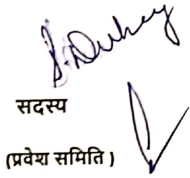 S. Dubey
सदस्य
(प्रवेश समिति)